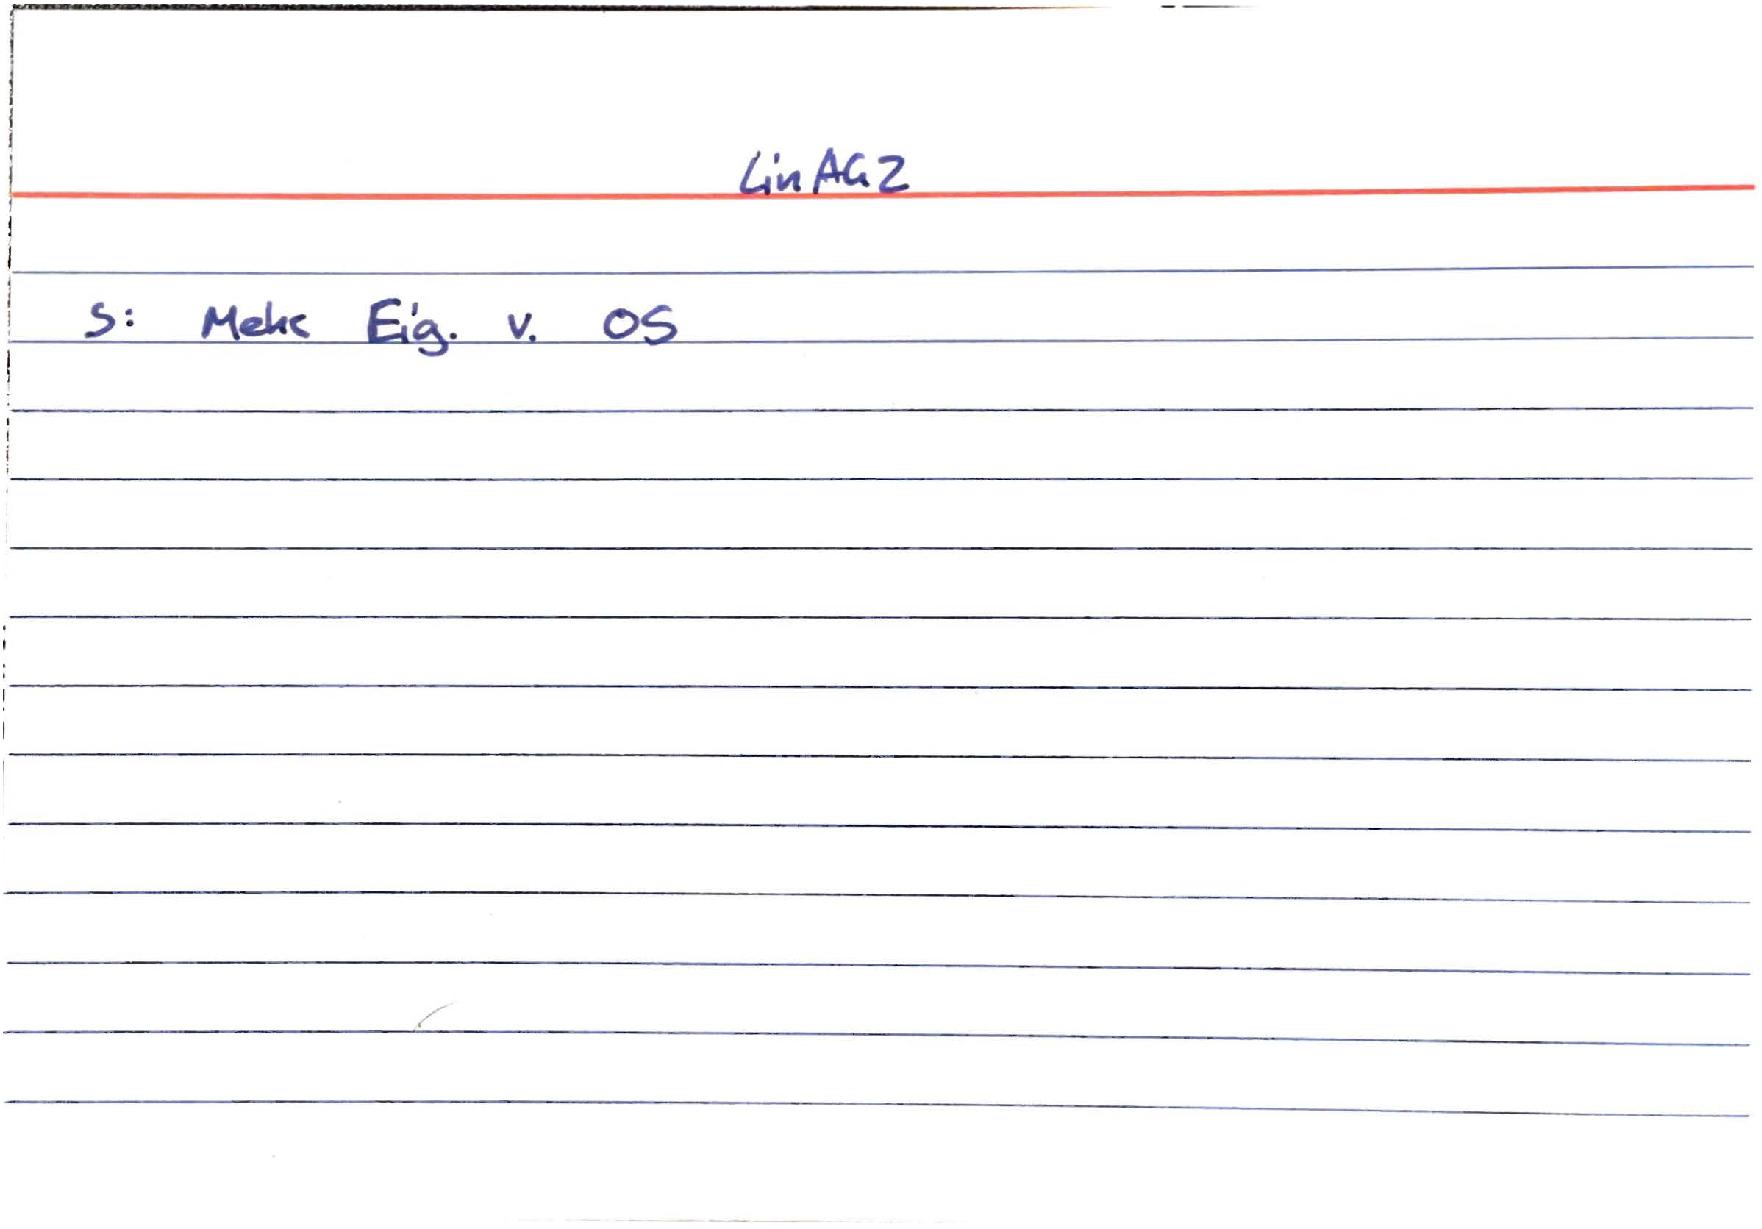 LinAG2
S: Mehr Eig. v. OS